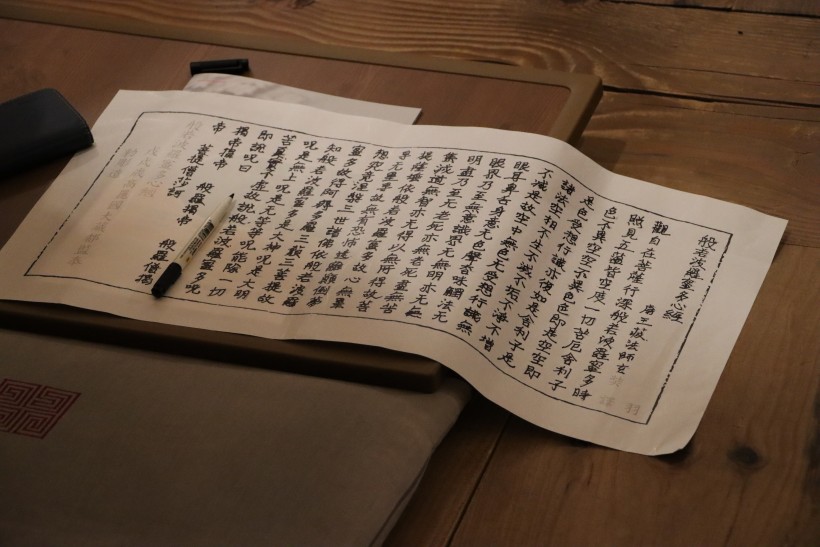 般若波羅蜜多心經 羽
唐三藏法師玄奘 譯
觀自在菩薩行深般若波羅蜜多時
照見五蘊皆空度一切苦厄舍利子
色不異空空不異色色即是空空即
是色受想行識亦復如是舍利子是
諸法空相不生不滅不垢不淨不增
不減是故空中無色无受想行識無
眼耳鼻舌身意无色聲香味觸法无
眼界乃至無意識界无無明亦无無
明盡乃至无老死亦無老死盡無苦
集滅道無智亦无得以無所得故菩
提薩埵依般若波羅蜜多故心無罣
礙無罣礙故無有恐怖遠離顛倒夢
想究竟涅槃三世諸佛依般若波羅
蜜多故得阿耨多羅三藐三菩提故
知般若波羅蜜多是大神呪是大明
呪是無上呪是无等等呪能除一切
苦真實不虛故說般若波羅蜜多呪
即說呪曰
揭帝揭帝 般羅揭帝 般羅僧揭
帝 菩提僧莎訶
般若波羅蜜多心經
戊戌歲高麗國大藏都監奉
敕雕造